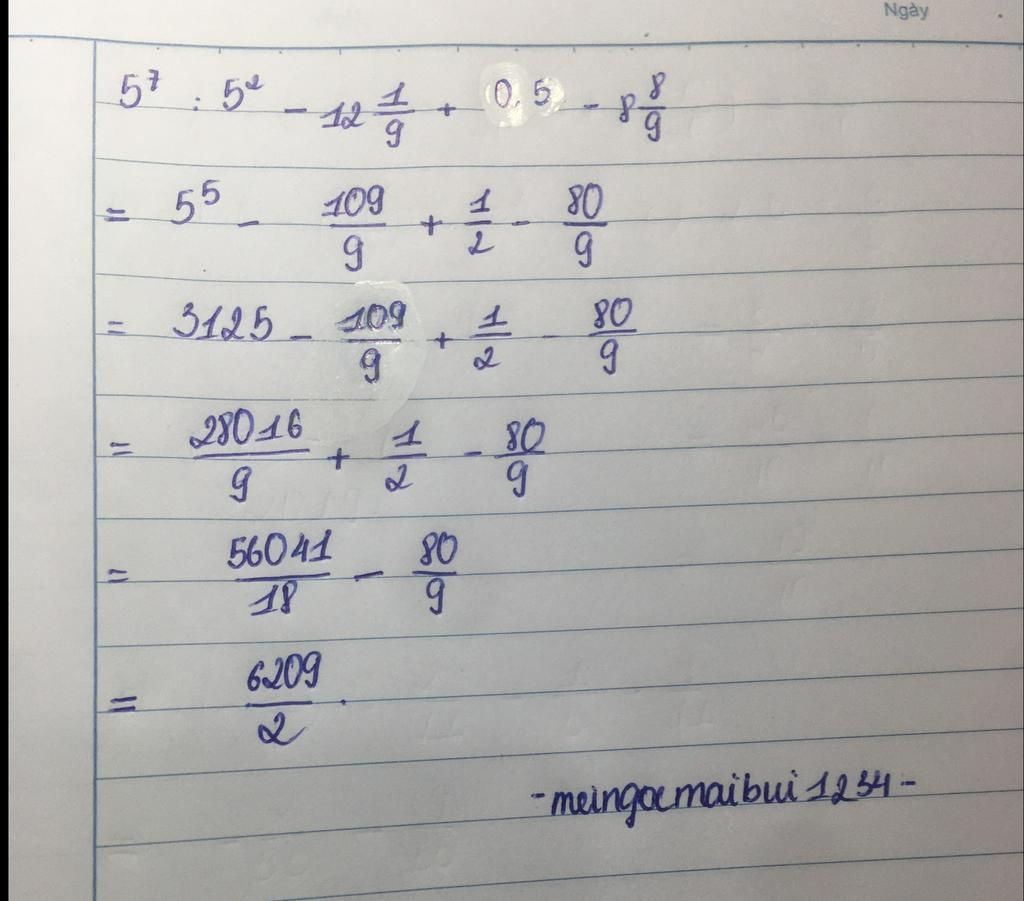 Ngày
5⁷ : 5² - 12 1/9 + 0,5 - 8 8/9
= 5⁵ - 109/9 + 1/2 - 80/9
= 3125 - 109/9 + 1/2 - 80/9
= 28016/9 + 1/2 - 80/9
= 56041/18 - 80/9
= 6209/2 .
- meingocmaibui1234 -